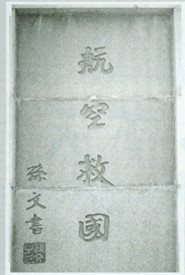 航空救國
孫文書